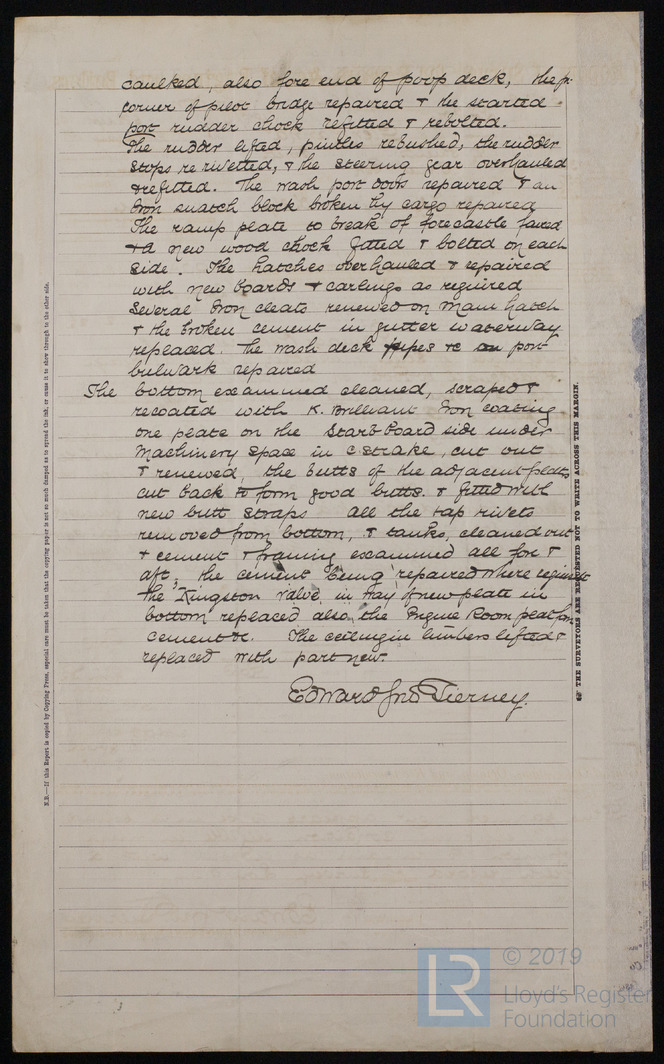 caulked, also fore end of poop deck, the p.
corner of pilot bridge repaired & the started
port rudder chock refitted & rebolted.
The rudder lifted, pintles rebushed, the rudder
stops re rivetted, & the steering gear overhauled
& refitted. The wash port doors repaired & an
Iron snatch block broken by cargo repaired
The ramp plate to break of forecastle faired
& a new wood chock fitted & bolted on each
side. The hatches overhauled & repaired
with new boards & carlings as required
Several Iron cleats renewed on main hatch
& the broken cement in gutter waterway
replaced. The wash deck pipes &c on port
bulwark repaired
The bottom examined cleaned, scraped &
recoated with K. Brilliant Iron coating
one plate on the Starb board side under
Machinery space in C strake, cut out
& renewed, the butts of the adjacent plates
cut back to form good butts. & fitted with
new butt straps all the tap rivets
removed from bottom, & tanks, cleaned out
& cement & framing examined all for &
aft; the cement being repaired where requisite
The Kingston valve in way of new plate in
bottom replaced also the Engine Room platform
cement &c. The ceiling in limbers lifted &
replaced with part new.
Edward Jno Tierney.
N.B.—If this Report is copied by Copying Press, especial care must be taken that the copying paper is not so much damped as to spread the ink, or cause it to show through to the other side.
THE SURVEYORS ARE REQUESTED NOT TO WRITE ACROSS THIS MARGIN.
LR
© 2019
Lloyd's Register
Foundation